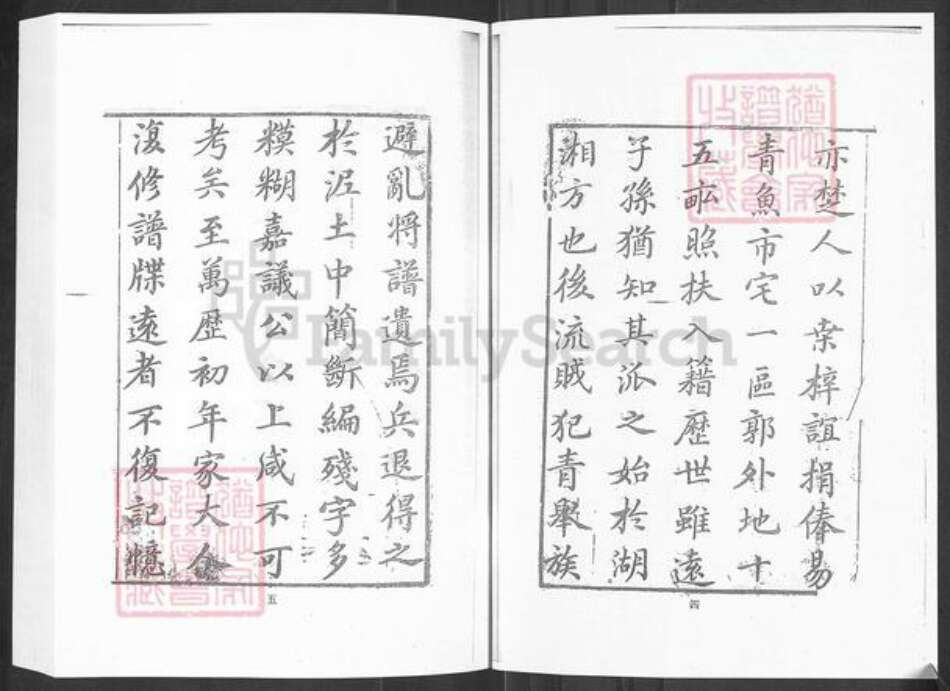 亦楚人以桑梓誼捐俸易
青魚市宅一區郭外地十
五畝照扶入籍歷世雖遠
子孫猶知其派之始於湖
湘方也後流賊犯青舉族
四
避亂將譜遺焉兵退得之
於泥土中簡斷編殘字多
糢糊嘉議公以上咸不可
考矣至萬歷初年家大人
復修譜牒遠者不復記憶
五
FamilySearch